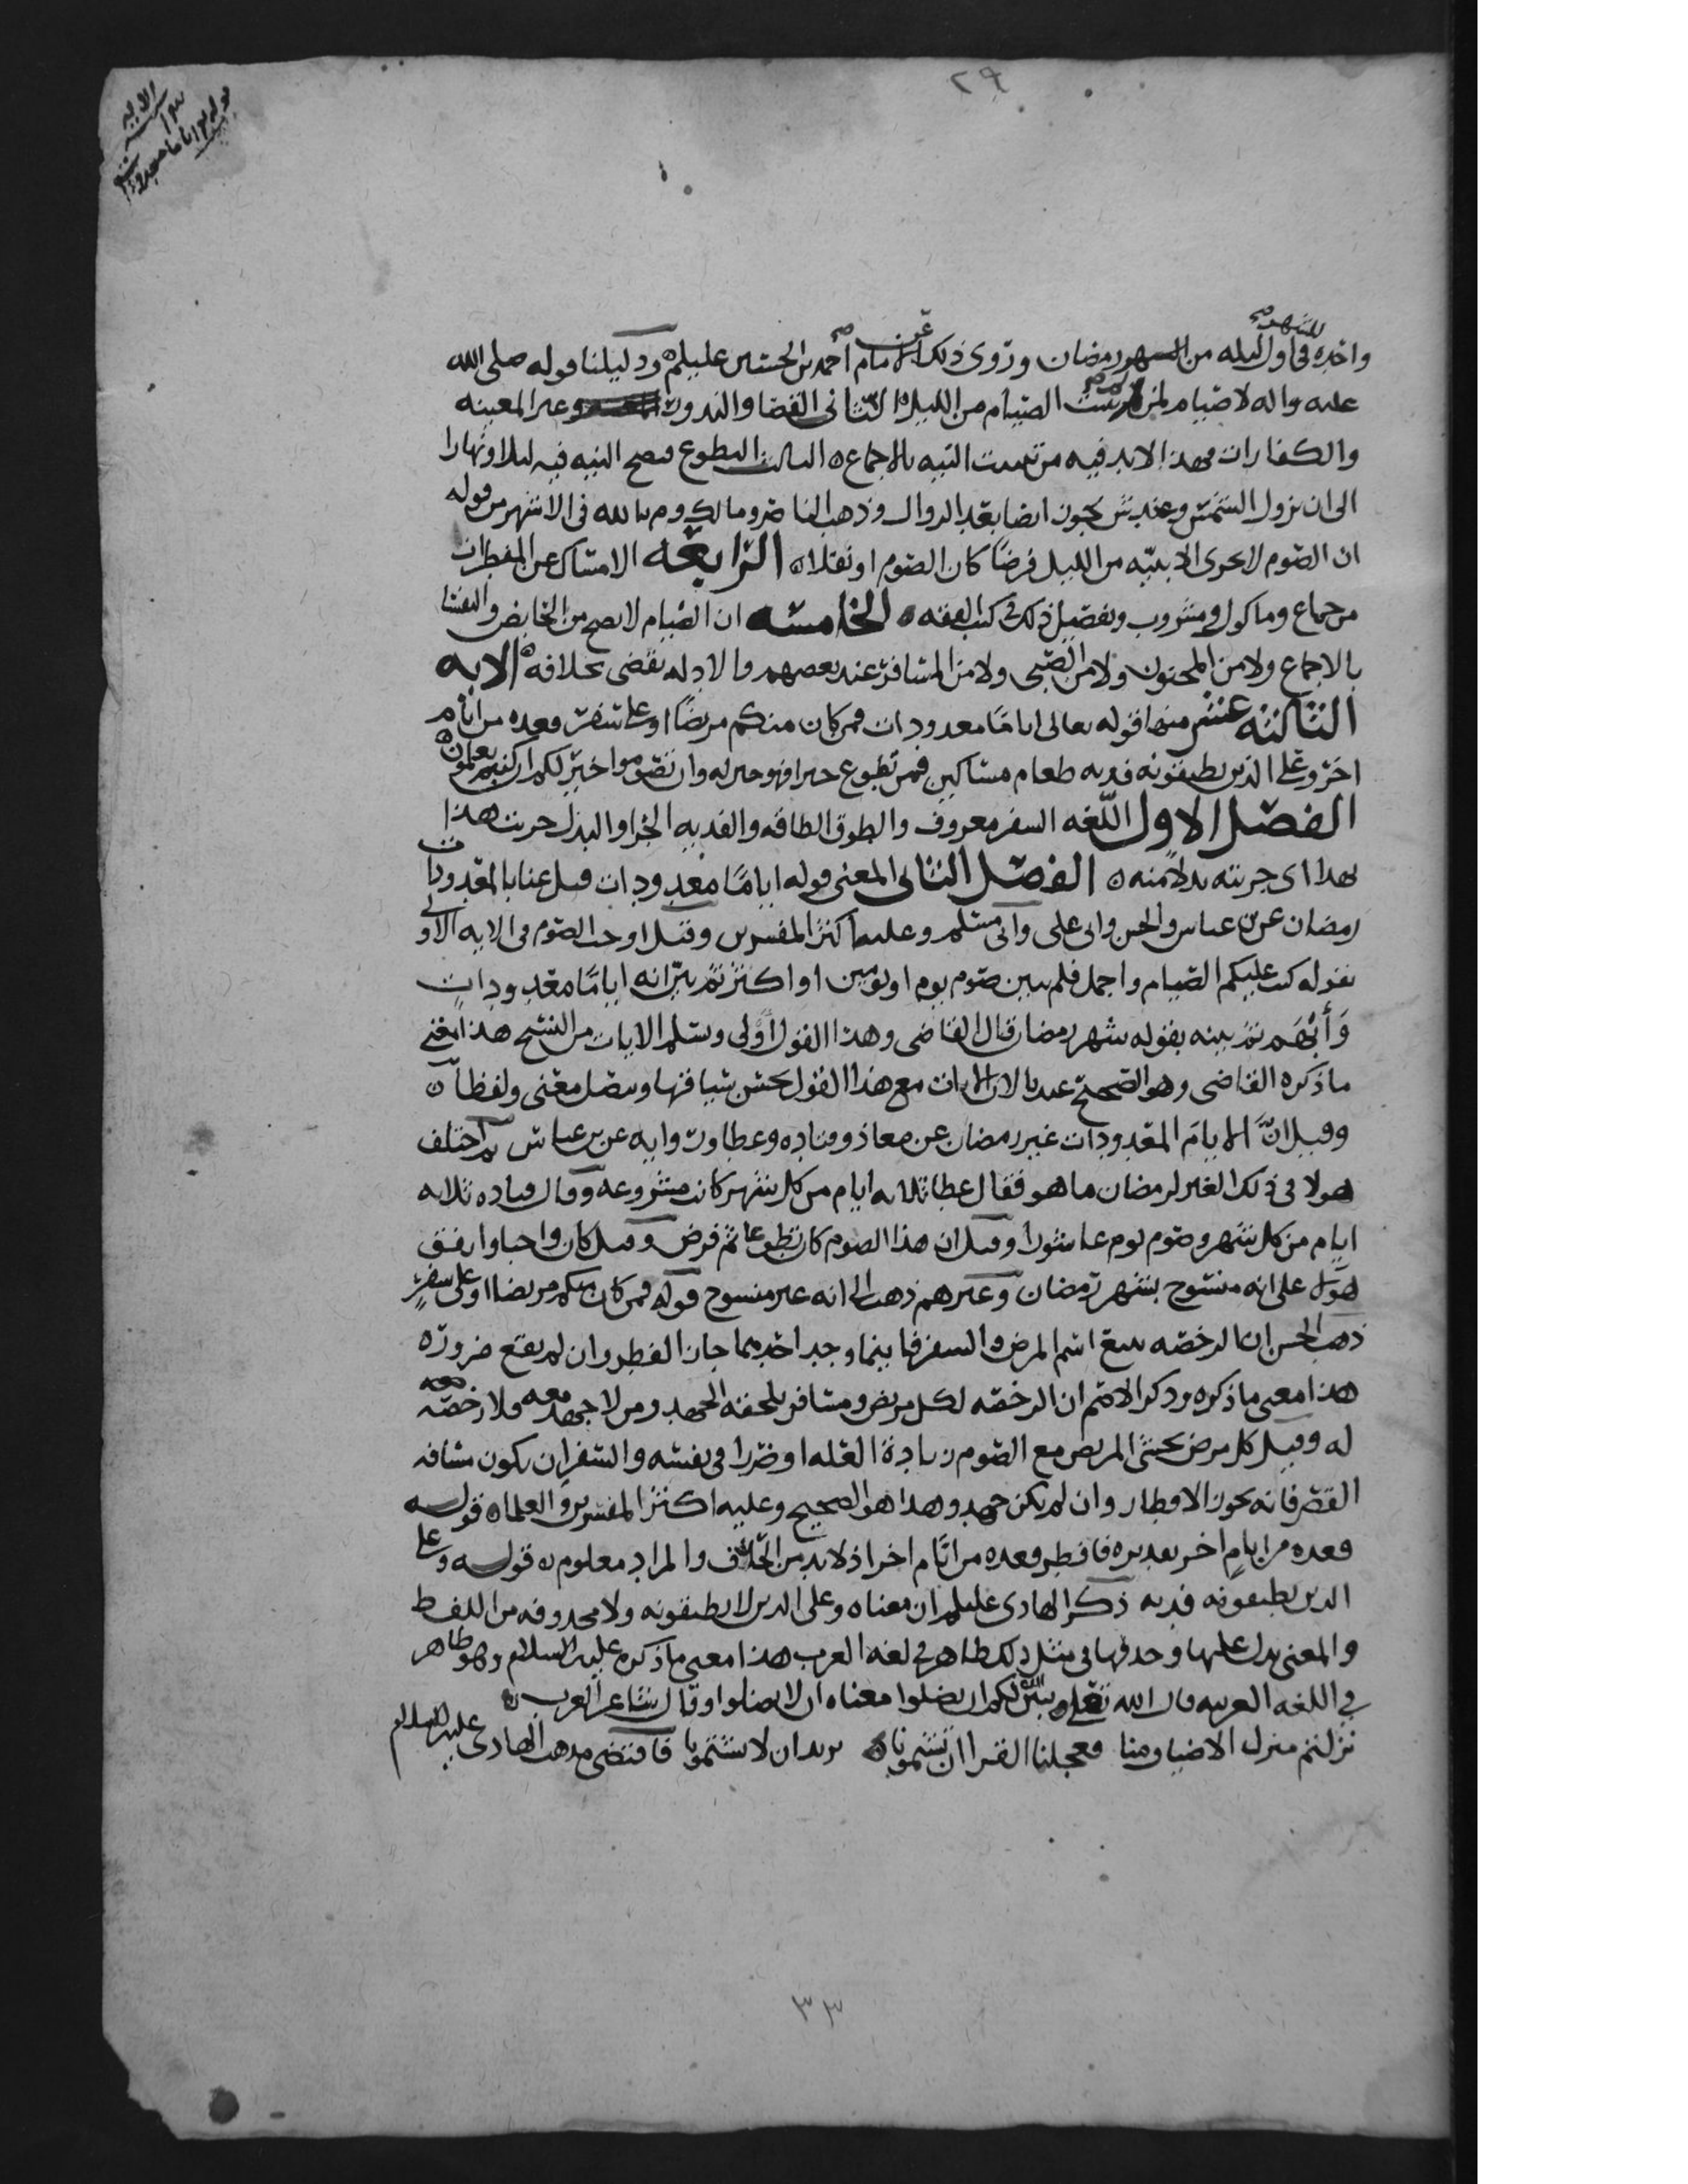 ٢٩
الايه
قوله تعالى اياما معدودات
للشهر صح
واحده فى اول ليله من رمضان وروى ذلك عن الامام احمد بن الحسين عليلم ودليلنا قوله صلى الله
عليه واله لا صيام لمن لم يبيت الصيام من الليل الثانى القضا والنذور وغير المعينه
والكفارات فهذا لابد فيه من تبييت النيه بالاجماع ٥ الثالث التطوع فيصح النيه فيه ليلا ونهارا
الى ان تزول الشمس وعند ش يجوز ايضا بعد الزوال وذهب الناصر ومالك وم بالله فى الاشهر من قوله
ان الصوم لا يجزى الا بنيه من الليل فرضا كان الصوم او نفلا ٥ الرابعه الامساك عن المفطرات
من جماع وماكول ومشروب وتفصيل ذلك فى كتب الفقه ٥ الخامسه ان الصيام لا يصح من الحايض والنفسا
بالاجماع ولا من المجنون ولا من الصبى ولا من المسافر عند بعضهم والادله تقضى بخلافه ٥ الايه
الثالثه عشر منها قوله تعالى اياما معدودات فمن كان منكم مريضا او على سفر فعده من ايام
اخر وعلى الذين يطيقونه فديه طعام مساكين فمن تطوع خيرا فهو خير له وان تصوموا خير لكم ان كنتم تعلمون
الفصل الاول اللغه السفر معروف والطوق الطاقه والفديه الجزا والبدل جزيت هذا
بهذا اى جزيته بدلا منه ٥ الفصل الثانى المعنى قوله اياما معدودات قيل عنا بالمعدودات
رمضان عن بن عباس والحسن وابى على وابى مسلم وعليه اكثر المفسرين وقيل اوجب الصوم فى الايه الاولى
بقوله كتب عليكم الصيام واجمل فلم يبين صوم يوم او يومين او اكثر ثم بين انه اياما معدودات
وأبهم ثم بينه بقوله شهر رمضان قال القاضى وهذا القول اولى وسلم الايات من النسخ هذا معنى
ما ذكره القاضى وهو الصحيح عندنا لان الايات مع هذا القول يحسن سياقها ويتصل معنى ولفظا ٥
وقيل ان الايام المعدودات غير رمضان عن معاذ وقتاده وعطا وروايه عن بن عباس ثم اختلف
هولا فى ذلك الغير لرمضان ما هو فقال عطا ثلاثه ايام من كل شهر كانت مشروعه وقال قتاده ثلاثه
ايام من كل شهر وصوم يوم عاشورا وقيل ان هذا الصوم كان تطوعا ثم فرض وقيل كان واجبا واتفق
هولا على انه منسوخ بشهر رمضان وغيرهم ذهب الى انه غير منسوخ قوله فمن كان منكم مريضا او على سفر
ذهب الحسن ان الرخصه تتبع اسم المرض والسفر فاينما وجد احدهما جاز الفطر وان لم يقع ضروره
هذا معنى ما ذكره وذكر الاصم ان الرخصه لكل مريض ومسافر يلحقه الجهد ومن لا جهد معه فلا رخصه
له وقيل كل مرض يخشى المريض مع الصوم زيادة العله او ضررا فى نفسه والسفر ان يكون مسافه
القصر فانه يجوز الافطار وان لم يكن جهد وهذا هو الصحيح وعليه اكثر المفسرين والعلما ٥ قوله
فعده من ايام اخر تقديره فافطر فعده من ايام اخر اذ لابد من الحذف والمراد معلوم ٥ قوله وعلى
الذين يطيقونه فديه ذكر الهادى عليلم ان معناه وعلى الذين لا يطيقونه ولا محذوفه من اللفظ
والمعنى يدل عليها وحذفها فى مثل ذلك ظاهر فى لغه العرب هذا معنى ما ذكره عليه السلام وهو ظاهر
فى اللغه العربيه قال الله تعلى يبين الله لكم ان تضلوا معناه ان لا تضلوا وقال شاعر العرب ٥
نزلتم منزل الاضياف منا فعجلنا القرا ان تشتمونا ٥ يريد ان لا تشتمونا فاقتضى مذهب الهادى عليه السلام
٣٣